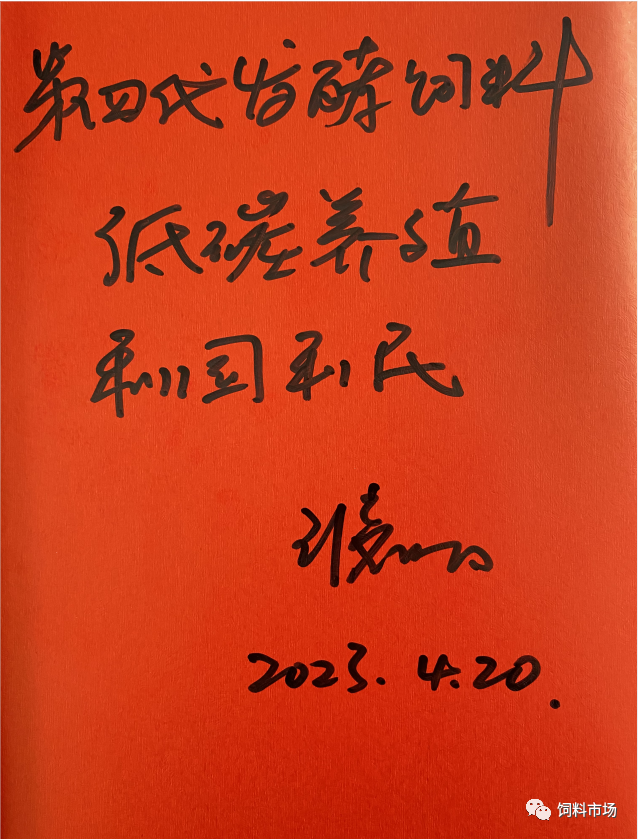 第四代发酵饲料
低碳养殖
利国利民
2023.4.20.
饲料市场